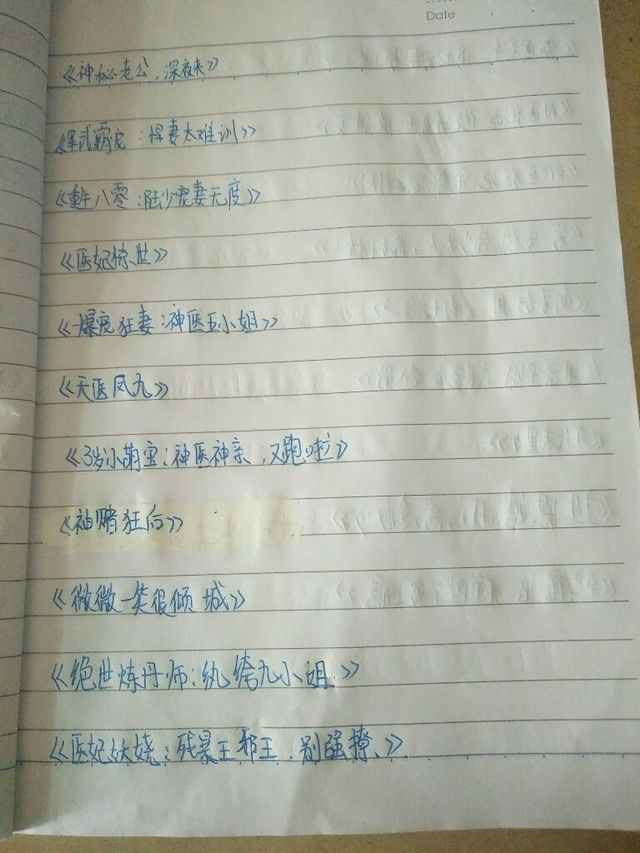 Date
《神秘老公，深夜来》
《军武霸宠：悍妻太难训》
《重生八零：陆少宠妻无度》
《医妃惊世》
《爆宠狂妻：神医五小姐》
《天医凤九》
《3岁小萌宝：神医神亲，又跑啦》
《神赌狂后》
《微微一笑很倾城》
《绝世炼丹师：纨绔九小姐》
《医妃妖娆：残暴王邪王，别强撩》